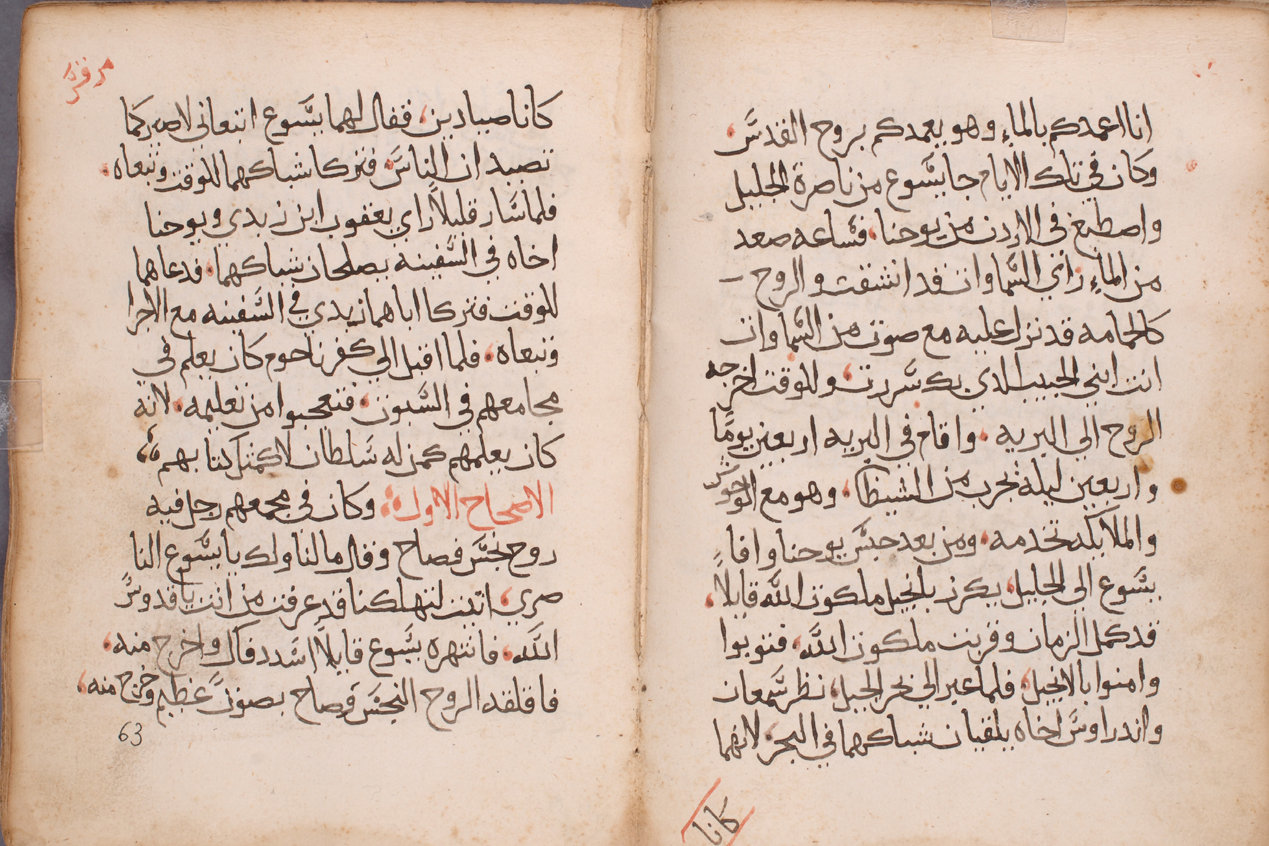 انا اعمدكم بالماء وهو يعمدكم بروح القدس
وكان في تلك الايام جا يسوع من ناصرة الجليل
واصطبغ في الاردن من يوحنا فساعه صعد
من الماء راي السماوات قد انشقت والروح
كالحمامه قد نزل عليه مع صوت من السماوات
انت ابني الحبيب الذي بك سررت وللوقت اخرجه
الروح الي البريه واقام في البريه اربعين يوما
واربعين ليله يجرب من الشيطان وهو مع الوحوش
والملايكه تخدمه ومن بعد حبس يوحنا وافا
يسوع الي الجليل يكرز بانجيل ملكوت الله قايلا
قد كمل الزمان وقربت ملكوت الله فتوبوا
وامنوا بالانجيل فلما عبر الي بحر الجليل نظر سمعان
واندراوس اخاه يلقيان شباكهما في البحر لانهما
كانا
مرقس
كانا صيادين فقال لهما يسوع اتبعاني لاصيركما
تصيدان الناس فتركا شباكهما للوقت وتبعاه
فلما سار قليلا راي يعقوب ابن زبدي ويوحنا
اخاه في السفينه يصلحان شباكهما فدعاهما
للوقت فتركا اباهما زبدي في السفينه مع الاجرا
وتبعاه فلما اقبل الي كفرناحوم كان يعلم في
مجامعهم في السبوت فتعجبوا من تعليمه لانه
كان يعلمهم كمن له سلطان لا كمثل كتابهم
الاصحاح الاول وكان في مجمعهم رجل فيه
روح نجس فصاح وقال ما لنا ولك يا يسوع النا
صري اتيت لتهلكنا قد عرفت من انت يا قدوس
الله فانتهره يسوع قايلا اسدد فاك واخرج منه
فاقلقه الروح النجس وصاح بصوت عظيم وخرج منه
63